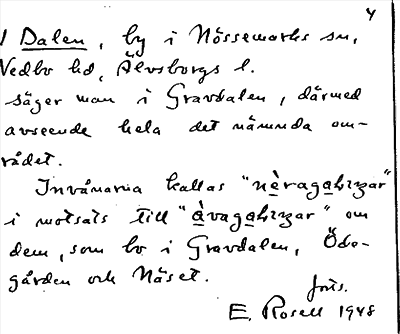 4
I Dalen, by i Nössemarks sn,
Vedbo hd, Älvsborgs l.
säger man i Gravdalen, därmed
avseende hela det nämnda om-
rådet.
Invånarna kallas "nèragaḥiŋar"
i motsats till "àvagaḥiŋar" om
dem, som bo i Gravdalen, Öde-
gården och Näset.
forts.
E. Rosell 1948